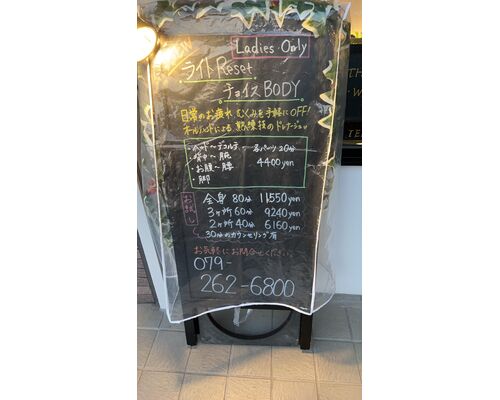 Ladies Only
ライト Reset
チョイス BODY
日常のお疲れ、むくみを手軽にOFF!
オールハンドによる熟練技のドレナージュ
・ヘッド〜デコルテ 各パーツ20分
・背中〜腕
・お腹〜腰 4400yen
・脚
お試し
全身 80分 11,550yen
3ヶ所 60分 9240yen
2ヶ所 40分 6160yen
30分のカウンセリング有
お気軽にお問合せください。
079-
262-6800
TH